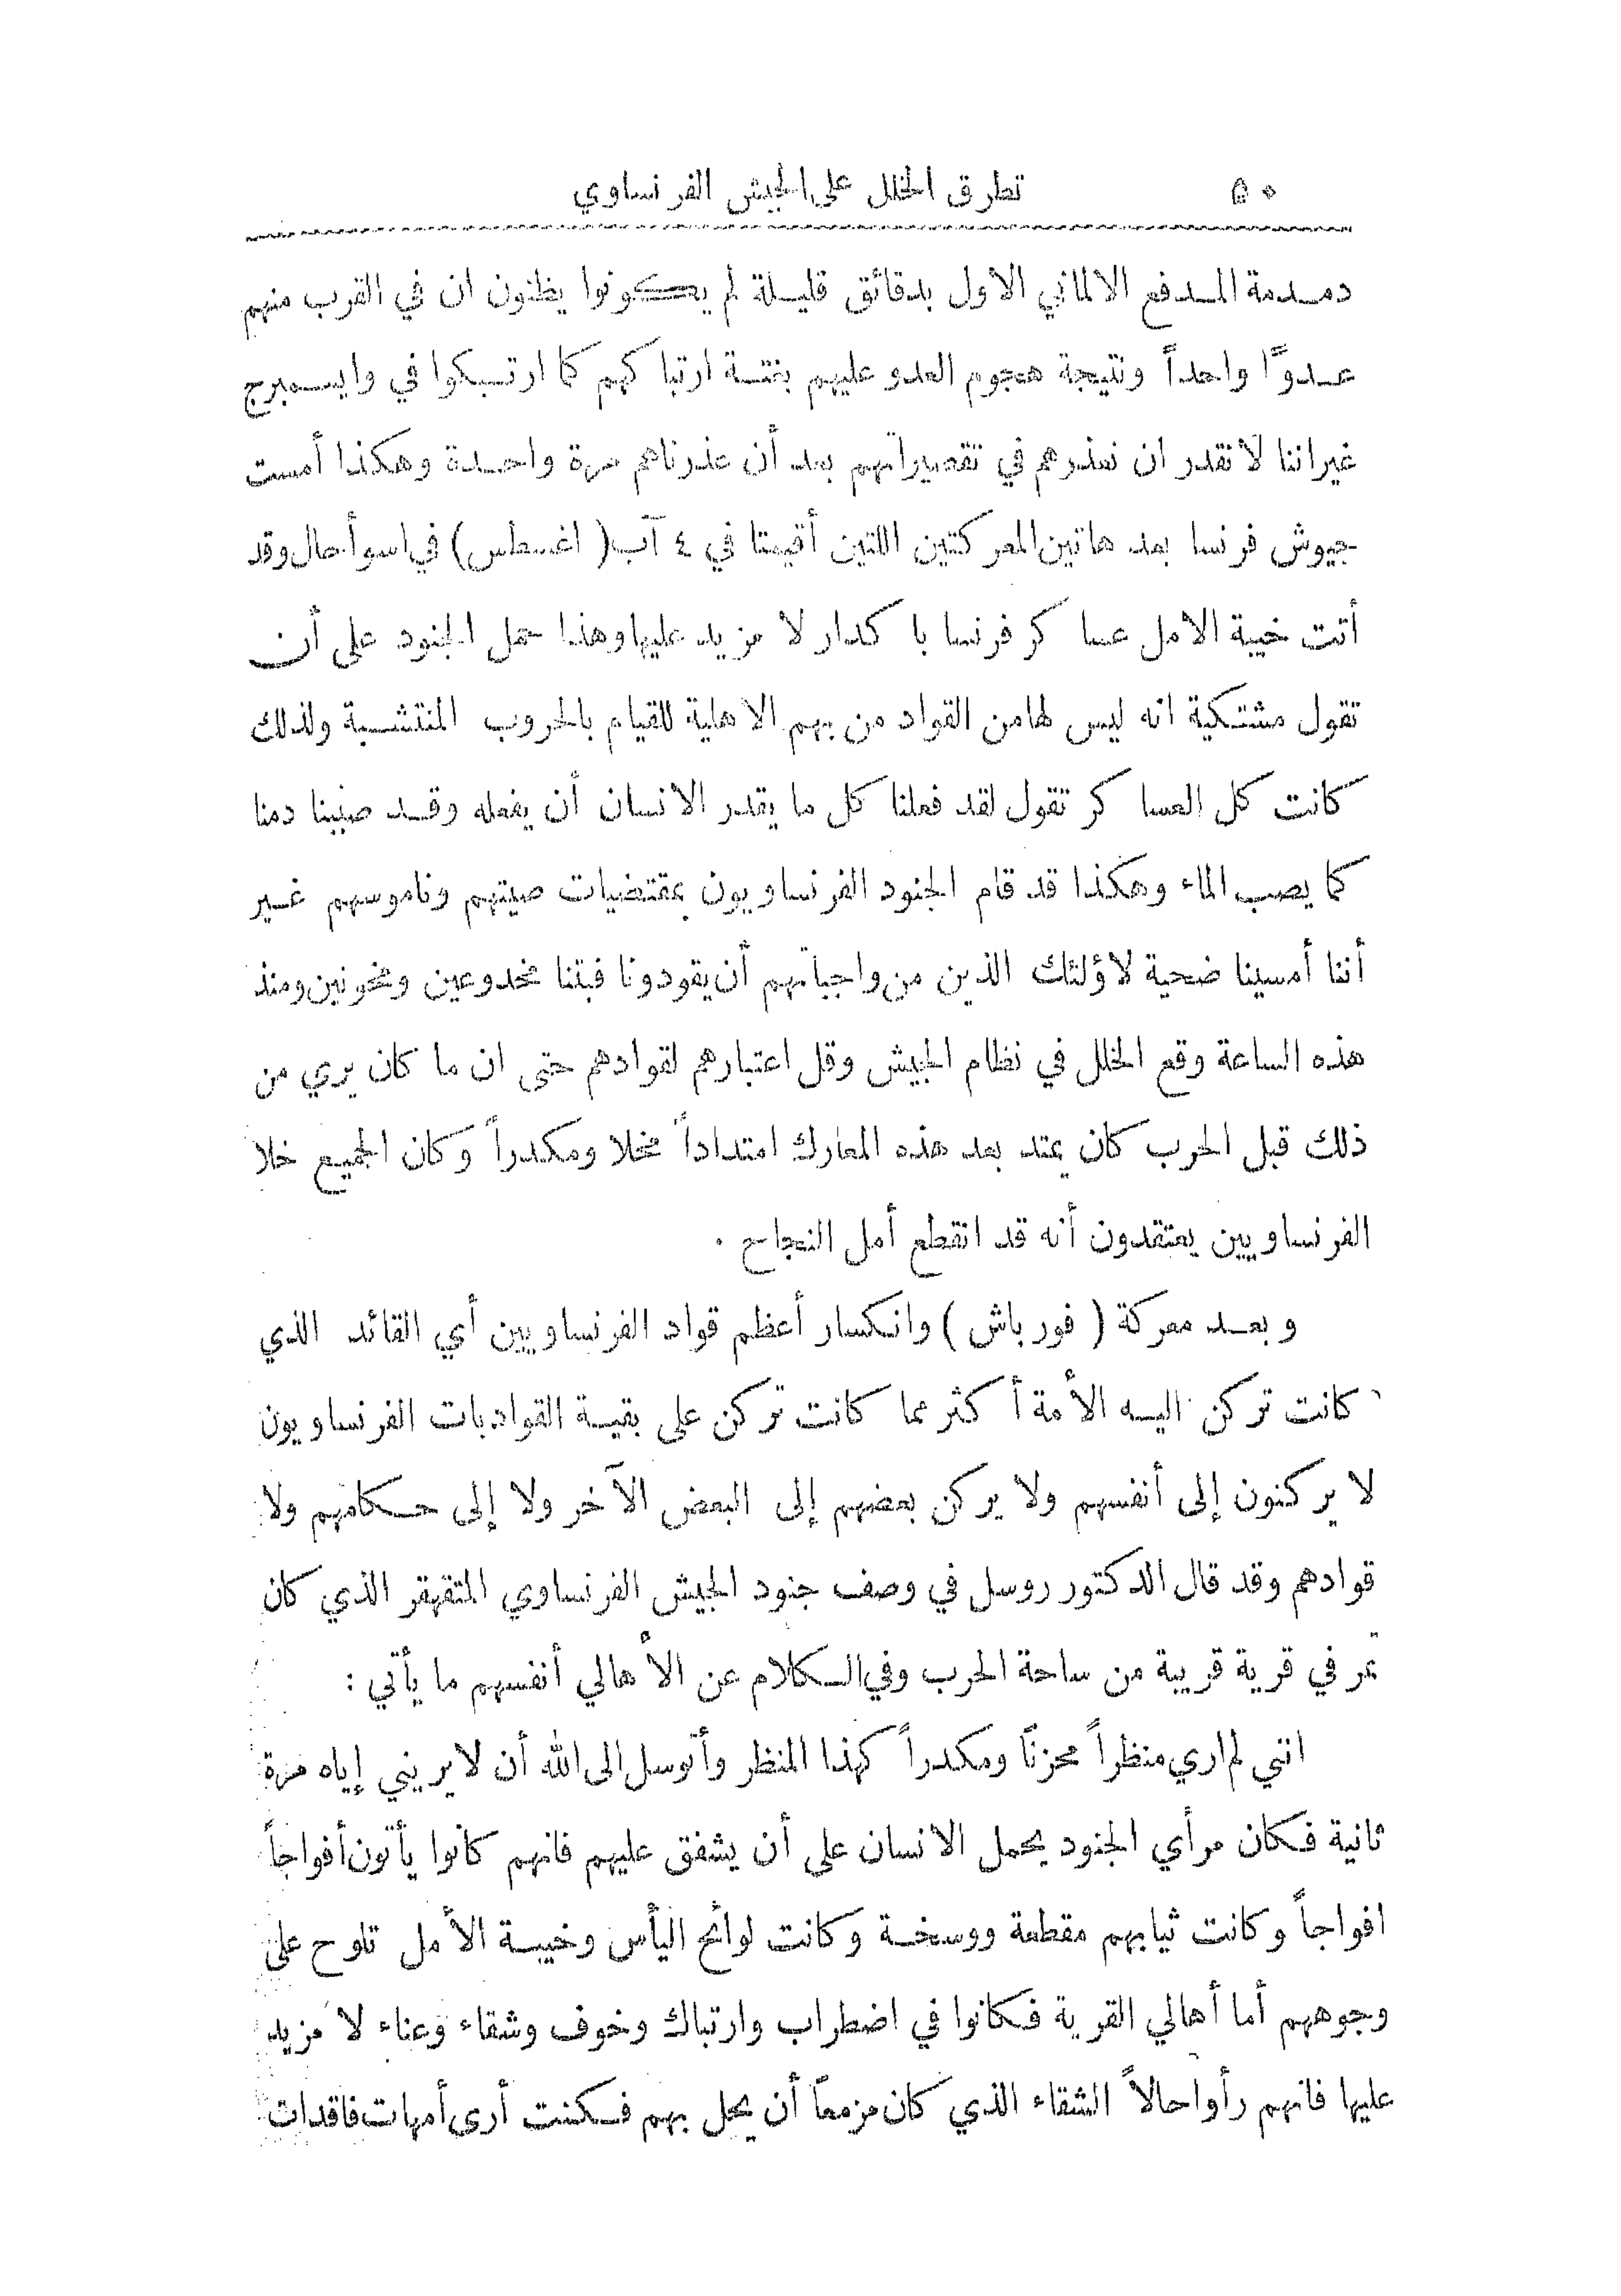 ٥٠ تطرق الخلل على الجيش الفرنساوي
دمدمة المدفع الالماني الاول بدقائق قليلة لم يكونوا يظنون ان في القرب منهم
عدوًّا واحداً ونتيجة هجوم العدو عليهم بغتة ارتباكهم كما ارتبكوا في وايسمبرج
غير اننا لا نقدر ان نعذرهم في تقصيراتهم بعد أن عذرناهم مرة واحدة وهكذا أمست
جيوش فرنسا بعد هاتين المعركتين اللتين أقيمتا في ٤ آب ( اغسطس ) في اسوأ حال وقد
أتت خيبة الامل عساكر فرنسا باكدار لا مزيد عليها وهذا حمل الجنود على أن
تقول مشتكية انه ليس لها من القواد من بهم الاهلية للقيام بالحروب المنتشبة ولذلك
كانت كل العساكر تقول لقد فعلنا كل ما يقدر الانسان أن يفعله وقد صبينا دمنا
كما يصب الماء وهكذا قد قام الجنود الفرنساويون بمقتضيات صيتهم وناموسهم غير
أننا أمسينا ضحية لاؤلئك الذين من واجباتهم أن يقودونا فبتنا مخدوعين ومخونين ومنذ
هذه الساعة وقع الخلل في نظام الجيش وقل اعتبارهم لقوادهم حتى ان ما كان يري من
ذلك قبل الحرب كان يمتد بعد هذه المعارك امتداداً مخلا ومكدراً وكان الجميع خلا
الفرنساويين يعتقدون أنه قد انقطع أمل النجاح .
وبعد معركة ( فورباش ) وانكسار أعظم قواد الفرنساويين أي القائد الذي
كانت تركن اليه الأمة أكثر مما كانت تركن على بقية القواد بات الفرنساويون
لا يركنون إلى أنفسهم ولا يركن بعضهم إلى البعض الآخر ولا إلى حكامهم ولا
قوادهم وقد قال الدكتور روسل في وصف جنود الجيش الفرنساوي المتقهقر الذي كان
تمر في قرية قريبة من ساحة الحرب وفي الكلام عن الأهالي أنفسهم ما يأتي :
انني لم اري منظراً محزنًا ومكدراً كهذا المنظر وأتوسل الى الله أن لا يريني إياه مرة
ثانية فكان مرأي الجنود يحمل الانسان على أن يشفق عليهم فانهم كانوا يأتون أفواجاً
افواجاً وكانت ثيابهم مقطعة ووسخة وكانت لوائح اليأس وخيبة الأمل تلوح على
وجوههم أما أهالي القرية فكانوا في اضطراب وارتباك وخوف وشقاء وعناء لا مزيد
عليها فانهم رأوا حالاً الشقاء الذي كان مزمعاً أن يحل بهم فكنت أرى أمهات فاقدات